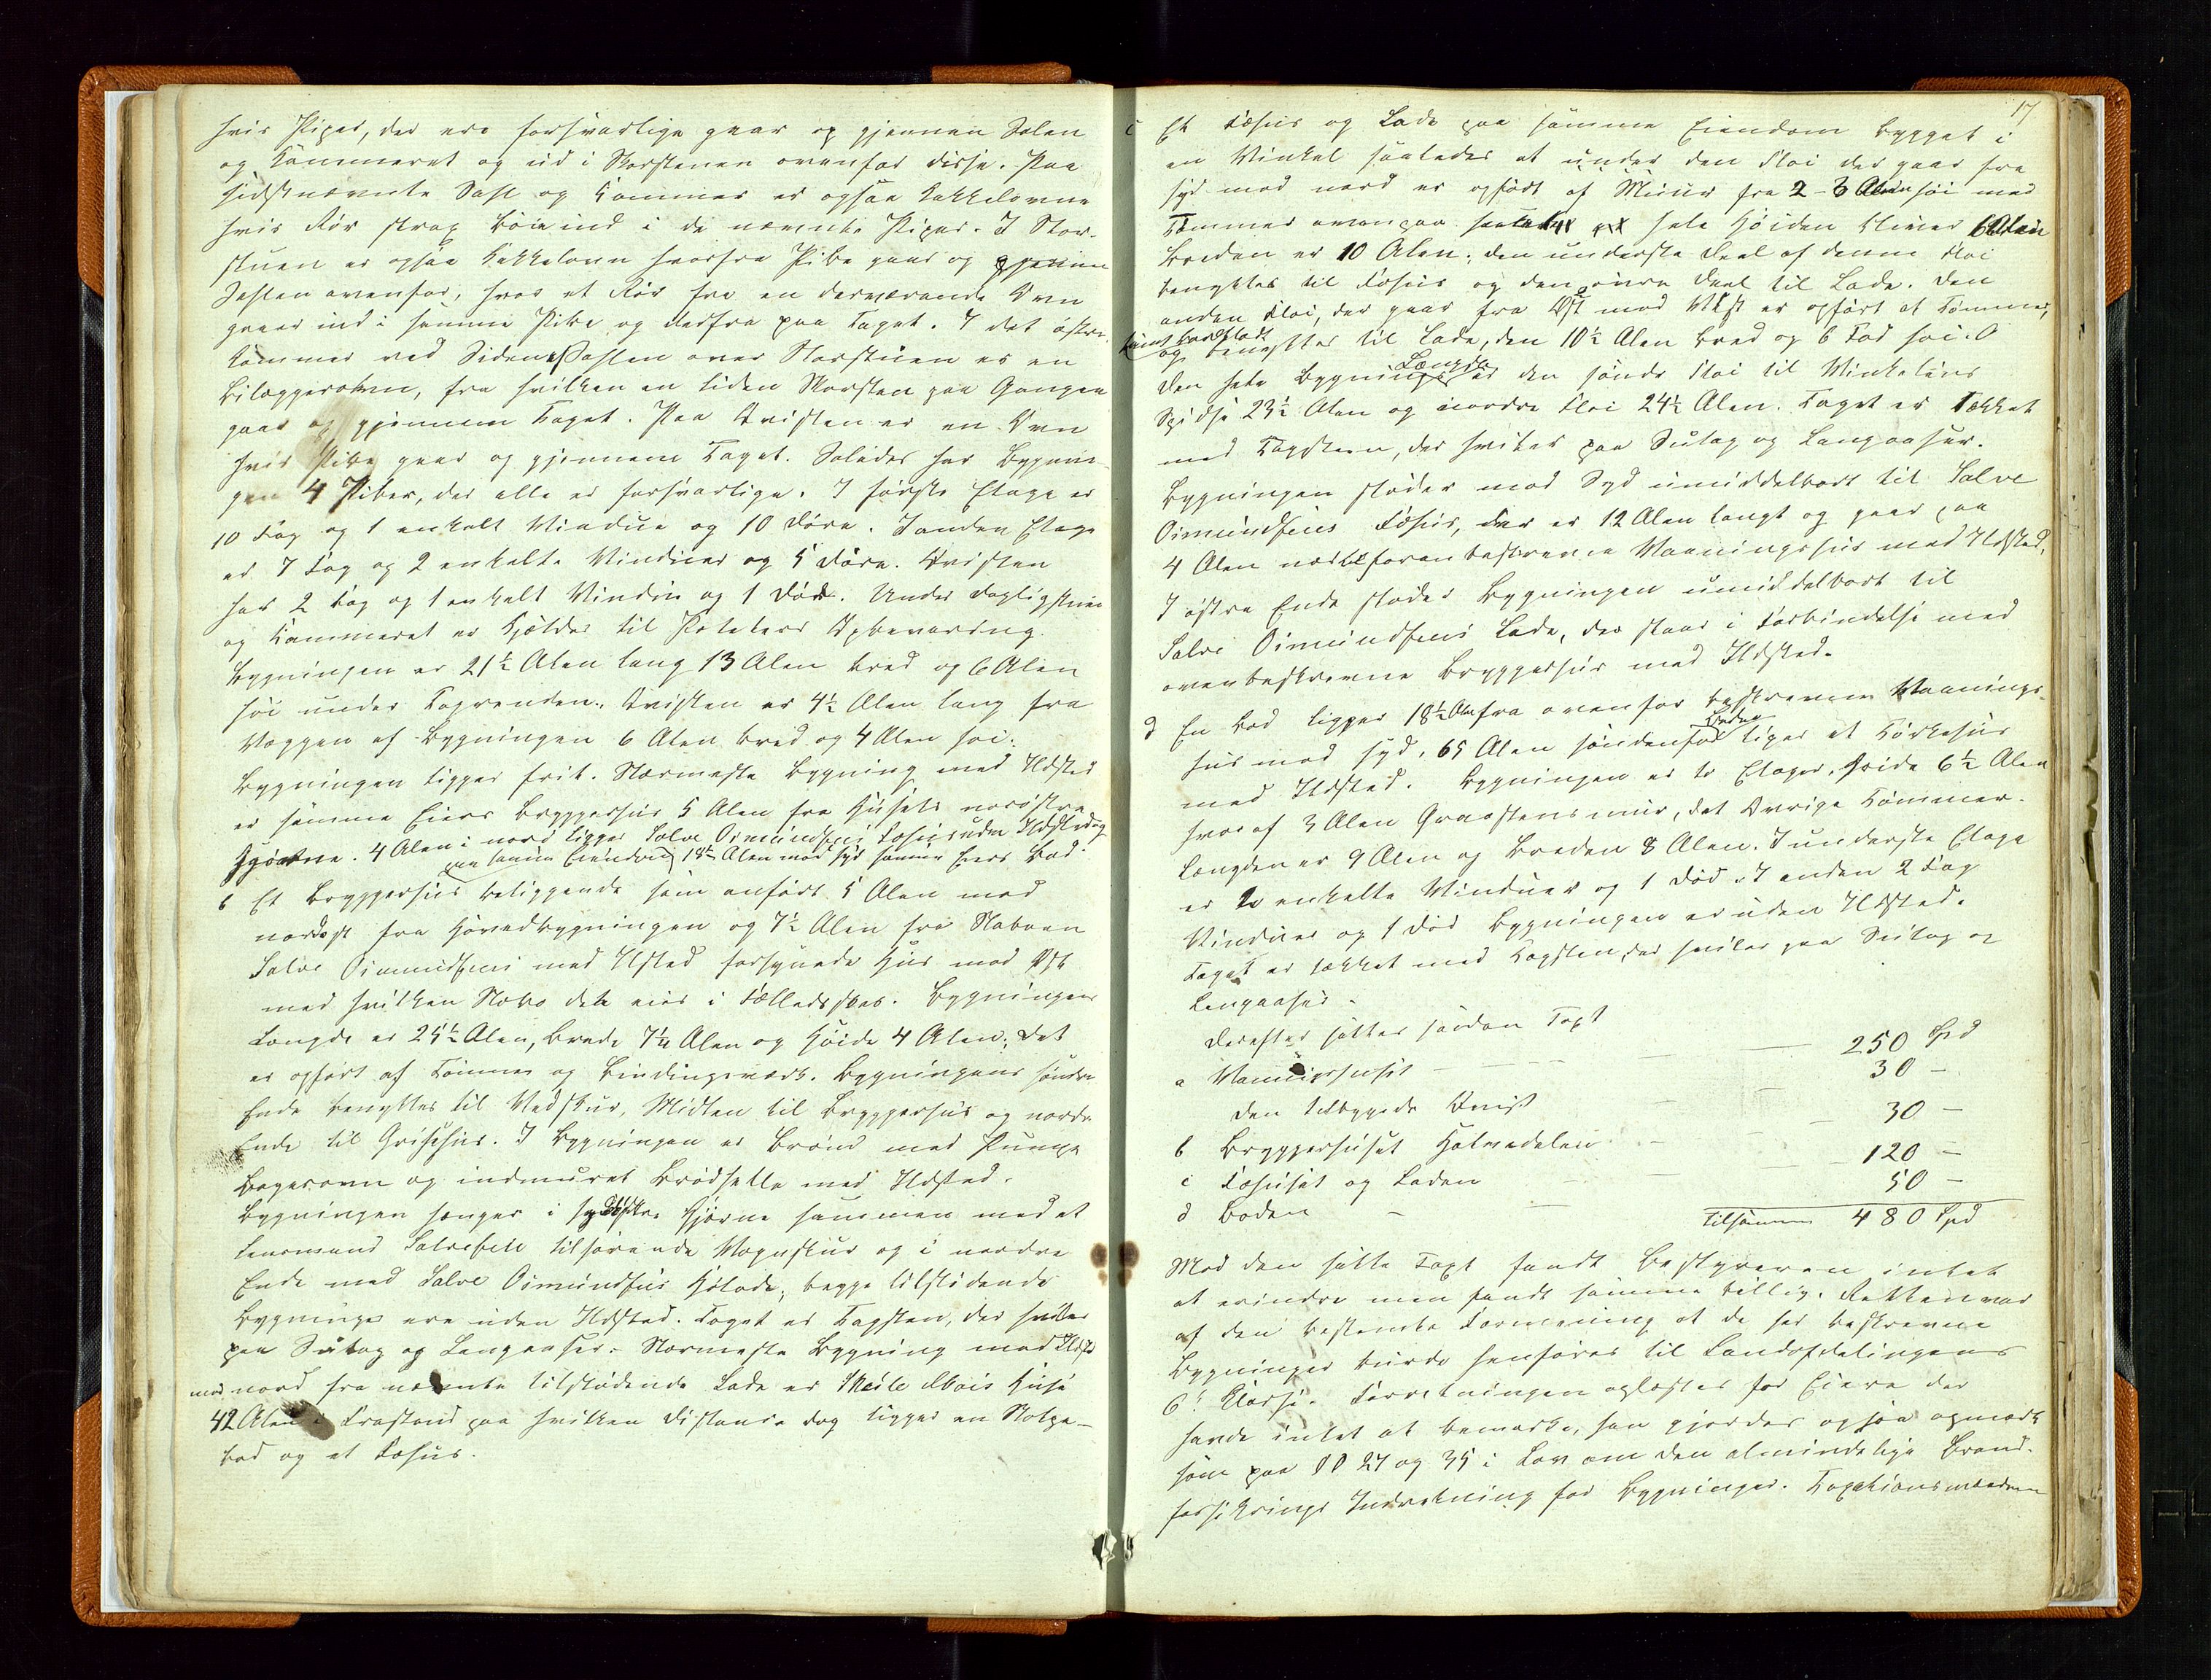 hvis Piper, der ere forsvarlige gaar op gjennem Salen
og Kammeret og ud i Skorstenen ovenfor disse. Paa
sidstnævnte Sahl og Kammer er ogsaa Kakkelovne
hvis Rör strax böie ind i de nævnte Piper. I Stor-
stuen er ogsaa Kakkelovn hvorfra Pibe gaar op gjennem
Sahlen ovenfor, hvor et Rör fra en derværende Ovn
gaaer ind i samme Pibe og derfra paa Taget. I det östre
Kammer ved Siden Sahlen over Storstuen er en
Bilæggerovn, fra hvilken en liden Skorsten paa Gangen
gaar op gjennem Taget. Paa Qvisten er en Ovn
hvis Pibe gaar op gjennem Taget. Saledes har Bygnin-
gen 4 Piber, der alle er forsvarlige. I förste Etage er
10 Fag og 1 enkelt Vindue og 10 Döre. I anden Etage
er 7 Fag og 2 enkelte Vinduer og 5 Döre. Qvisten
har 2 Fag og 1 enkelt Vindu og 1 Dör. Under Dagligstuen
og Kammeret er Kjelder til Poteters Opbevaring.
Bygningen er 21½ Alen lang 13 Alen bred og 6 Alen
höi under Tagrenden. Qvisten er 4½ Alen lang fra
Væggen af Bygningen 6 Alen bred og 4 Alen höi.
Bygningen ligger frit. Nærmeste Bygning med Ildsted
er samme Eiers Bryggerhus 5 Alen fra Husets nordöstre
Hjörne. 4 Alen i nord ligger Salve Oimundsens Fæhus uden Ildsted og
paa samme Eiendom 18½ Alen mod syd samme Eiers Bod.
b Et Bryggerhus beliggende som anfört 5 Alen mod
nordost fra Hovedbygningen og 7½ Alen fra Naboen
Salve Oimundsens med Ildsted forsynede Hus mod Öst
med hvilken Nabo dete eies i Fælledsskab. Bygningens
Længde er 25½ Alen, Brede 7¼ Alen og Höide 4 Alen; det
er opfört af Tömmer og Bindingsværk. Bygningens söndre
Ende benyttes til Vedskur, Midten til Bryggerhus og nordre
Ende til Grisehus. I Bygningen er Brönd med Pumpe
Bagerovn og indmuret Brödhelle med Ildsted.
Bygningen hænger i sydöstre Hjörne sammen med et
Lensmand Salvesen tilhörende Vognskur og i nordre
Ende med Salve Oimundsens Hölade; begge tilstödende
Bygninge ere uden Ildsted. Taget er Tagsten, der hviler
paa Sutag og Langaaser. Nærmeste Bygning med Ildsted
mod nord fra nævnte tilstödende Lade er Huse
42 Alen i Frastand paa hvilken Distance dog ligger en Stolpe-
bod og et Fæhus.
17
c Et Fæhus og Lade paa samme Eiendom bygget i
en Vinkel saaledes at under den Flöi der gaar fra
syd mod nord er opfört af Muur fra 2-3 Alen höi med
Tömmer ovenpaa hele Höiden bliver 6 Alen
Breden er 10 Alen; den underste Deel af denne Flöi
benyttes til Fæhus og den övre Deel til Lade. Den
anden Flöi, der gaar fra Öst mod Vest er opfört af Tömmer,
og benyttes til Lade, den 10½ Alen bred og 6 Fod höi.
Den hele Bygnings Længde er den söndre Flöi til Vinkelens
Spidse 23½ Alen og nordre Flöi 24½ Alen. Taget er tækket
med Tagsteen, der hviler paa Sutag og Langaaser.
Bygningen stöder mod Syd umiddelbart til Salve
Oimundsens Fæhus, der er 12 Alen langt og gaar paa
4 Alen nær foranbeskrevne Vaaningshus med Ildsted.
I östre Ende stöder Bygningen umiddelbart til
Salve Oimundsens Lade, der staar i Forbindelse med
ovenbeskrevne Bryggerhus med Ildsted.
d En Bod ligger 18½ Alen fra ovenfor beskrevne Vaanings-
hus mod syd. 65 Alen söndenfor Boden liger et Törkehus
med Ildsted. Bygningen er to Etager, Höide 6½ Alen
hvoraf 3 Alen Graastensmur, det Övrige Tömmer.
Længden er 9 Alen og Breden 8 Alen. I underste Etage
er to enkelte Vinduer og 1 Dör. I anden 2 Fag
Vinduer og 1 Dör Bygningen er uden Ildsted.
Taget er tækket med Tagsten, der hviler paa Sutag og
Langaaser.
Derefter sattes saadan Taxt
a Vaaningshuset — — 250 Spd
den tilbyggede Qvist — 30 —
b Bryggerhuset Halvedelen — 30 —
c Fæhuset og Laden — 120 —
d Boden — — 50 —
tilsammen 480 Spd
Mod den satte Taxt fandt Bestyreren intet
at erindre men fandt samme billig. Retten var
af den bestemte Formening at de her beskrevne
Bygninger burde henföres til Landafdelingens
6te Klasse. Forretningen oplæstes for Eieren der
havde intet at bemærke, han gjordes ogsaa opmærk-
som paa §§ 27 og 35 i Lov om den almindelige Brand-
forsikrings Indretning for Bygninger. Taxtionsmændene